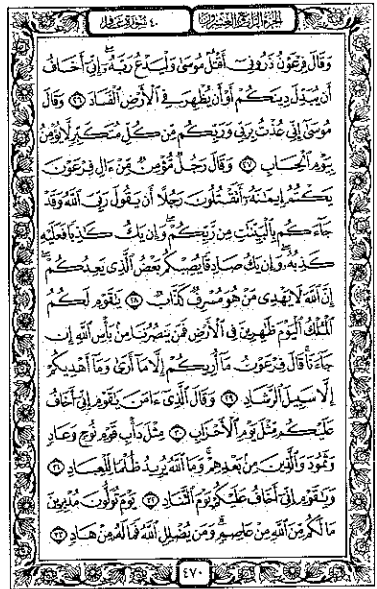 الجزء الرابع والعشرون ٤٠ سورة غافر
وَقَالَ فِرْعَوْنُ ذَرُونِىٓ أَقْتُلْ مُوسَىٰ وَلْيَدْعُ رَبَّهُۥٓ ۖ إِنِّىٓ أَخَافُ
أَن يُبَدِّلَ دِينَكُمْ أَوْ أَن يُظْهِرَ فِى ٱلْأَرْضِ ٱلْفَسَادَ ٢٦ وَقَالَ
مُوسَىٰٓ إِنِّى عُذْتُ بِرَبِّى وَرَبِّكُم مِّن كُلِّ مُتَكَبِّرٍ لَّا يُؤْمِنُ
بِيَوْمِ ٱلْحِسَابِ ٢٧ وَقَالَ رَجُلٌ مُّؤْمِنٌ مِّنْ ءَالِ فِرْعَوْنَ
يَكْتُمُ إِيمَٰنَهُۥٓ أَتَقْتُلُونَ رَجُلًا أَن يَقُولَ رَبِّىَ ٱللَّهُ وَقَدْ
جَآءَكُم بِٱلْبَيِّنَٰتِ مِن رَّبِّكُمْ ۖ وَإِن يَكُ كَٰذِبًا فَعَلَيْهِ
كَذِبُهُۥ ۖ وَإِن يَكُ صَادِقًا يُصِبْكُم بَعْضُ ٱلَّذِى يَعِدُكُمْ ۖ
إِنَّ ٱللَّهَ لَا يَهْدِى مَنْ هُوَ مُسْرِفٌ كَذَّابٌ ٢٨ يَٰقَوْمِ لَكُمُ
ٱلْمُلْكُ ٱلْيَوْمَ ظَٰهِرِينَ فِى ٱلْأَرْضِ فَمَن يَنصُرُنَا مِنۢ بَأْسِ ٱللَّهِ إِن
جَآءَنَا ۚ قَالَ فِرْعَوْنُ مَآ أُرِيكُمْ إِلَّا مَآ أَرَىٰ وَمَآ أَهْدِيكُمْ
إِلَّا سَبِيلَ ٱلرَّشَادِ ٢٩ وَقَالَ ٱلَّذِىٓ ءَامَنَ يَٰقَوْمِ إِنِّىٓ أَخَافُ
عَلَيْكُم مِّثْلَ يَوْمِ ٱلْأَحْزَابِ ٣٠ مِثْلَ دَأْبِ قَوْمِ نُوحٍ وَعَادٍ
وَثَمُودَ وَٱلَّذِينَ مِنۢ بَعْدِهِمْ ۚ وَمَا ٱللَّهُ يُرِيدُ ظُلْمًا لِّلْعِبَادِ ٣١
وَيَٰقَوْمِ إِنِّىٓ أَخَافُ عَلَيْكُمْ يَوْمَ ٱلتَّنَادِ ٣٢ يَوْمَ تُوَلُّونَ مُدْبِرِينَ
مَا لَكُم مِّنَ ٱللَّهِ مِنْ عَاصِمٍ ۗ وَمَن يُضْلِلِ ٱللَّهُ فَمَا لَهُۥ مِنْ هَادٍ ٣٣
٤٧٠